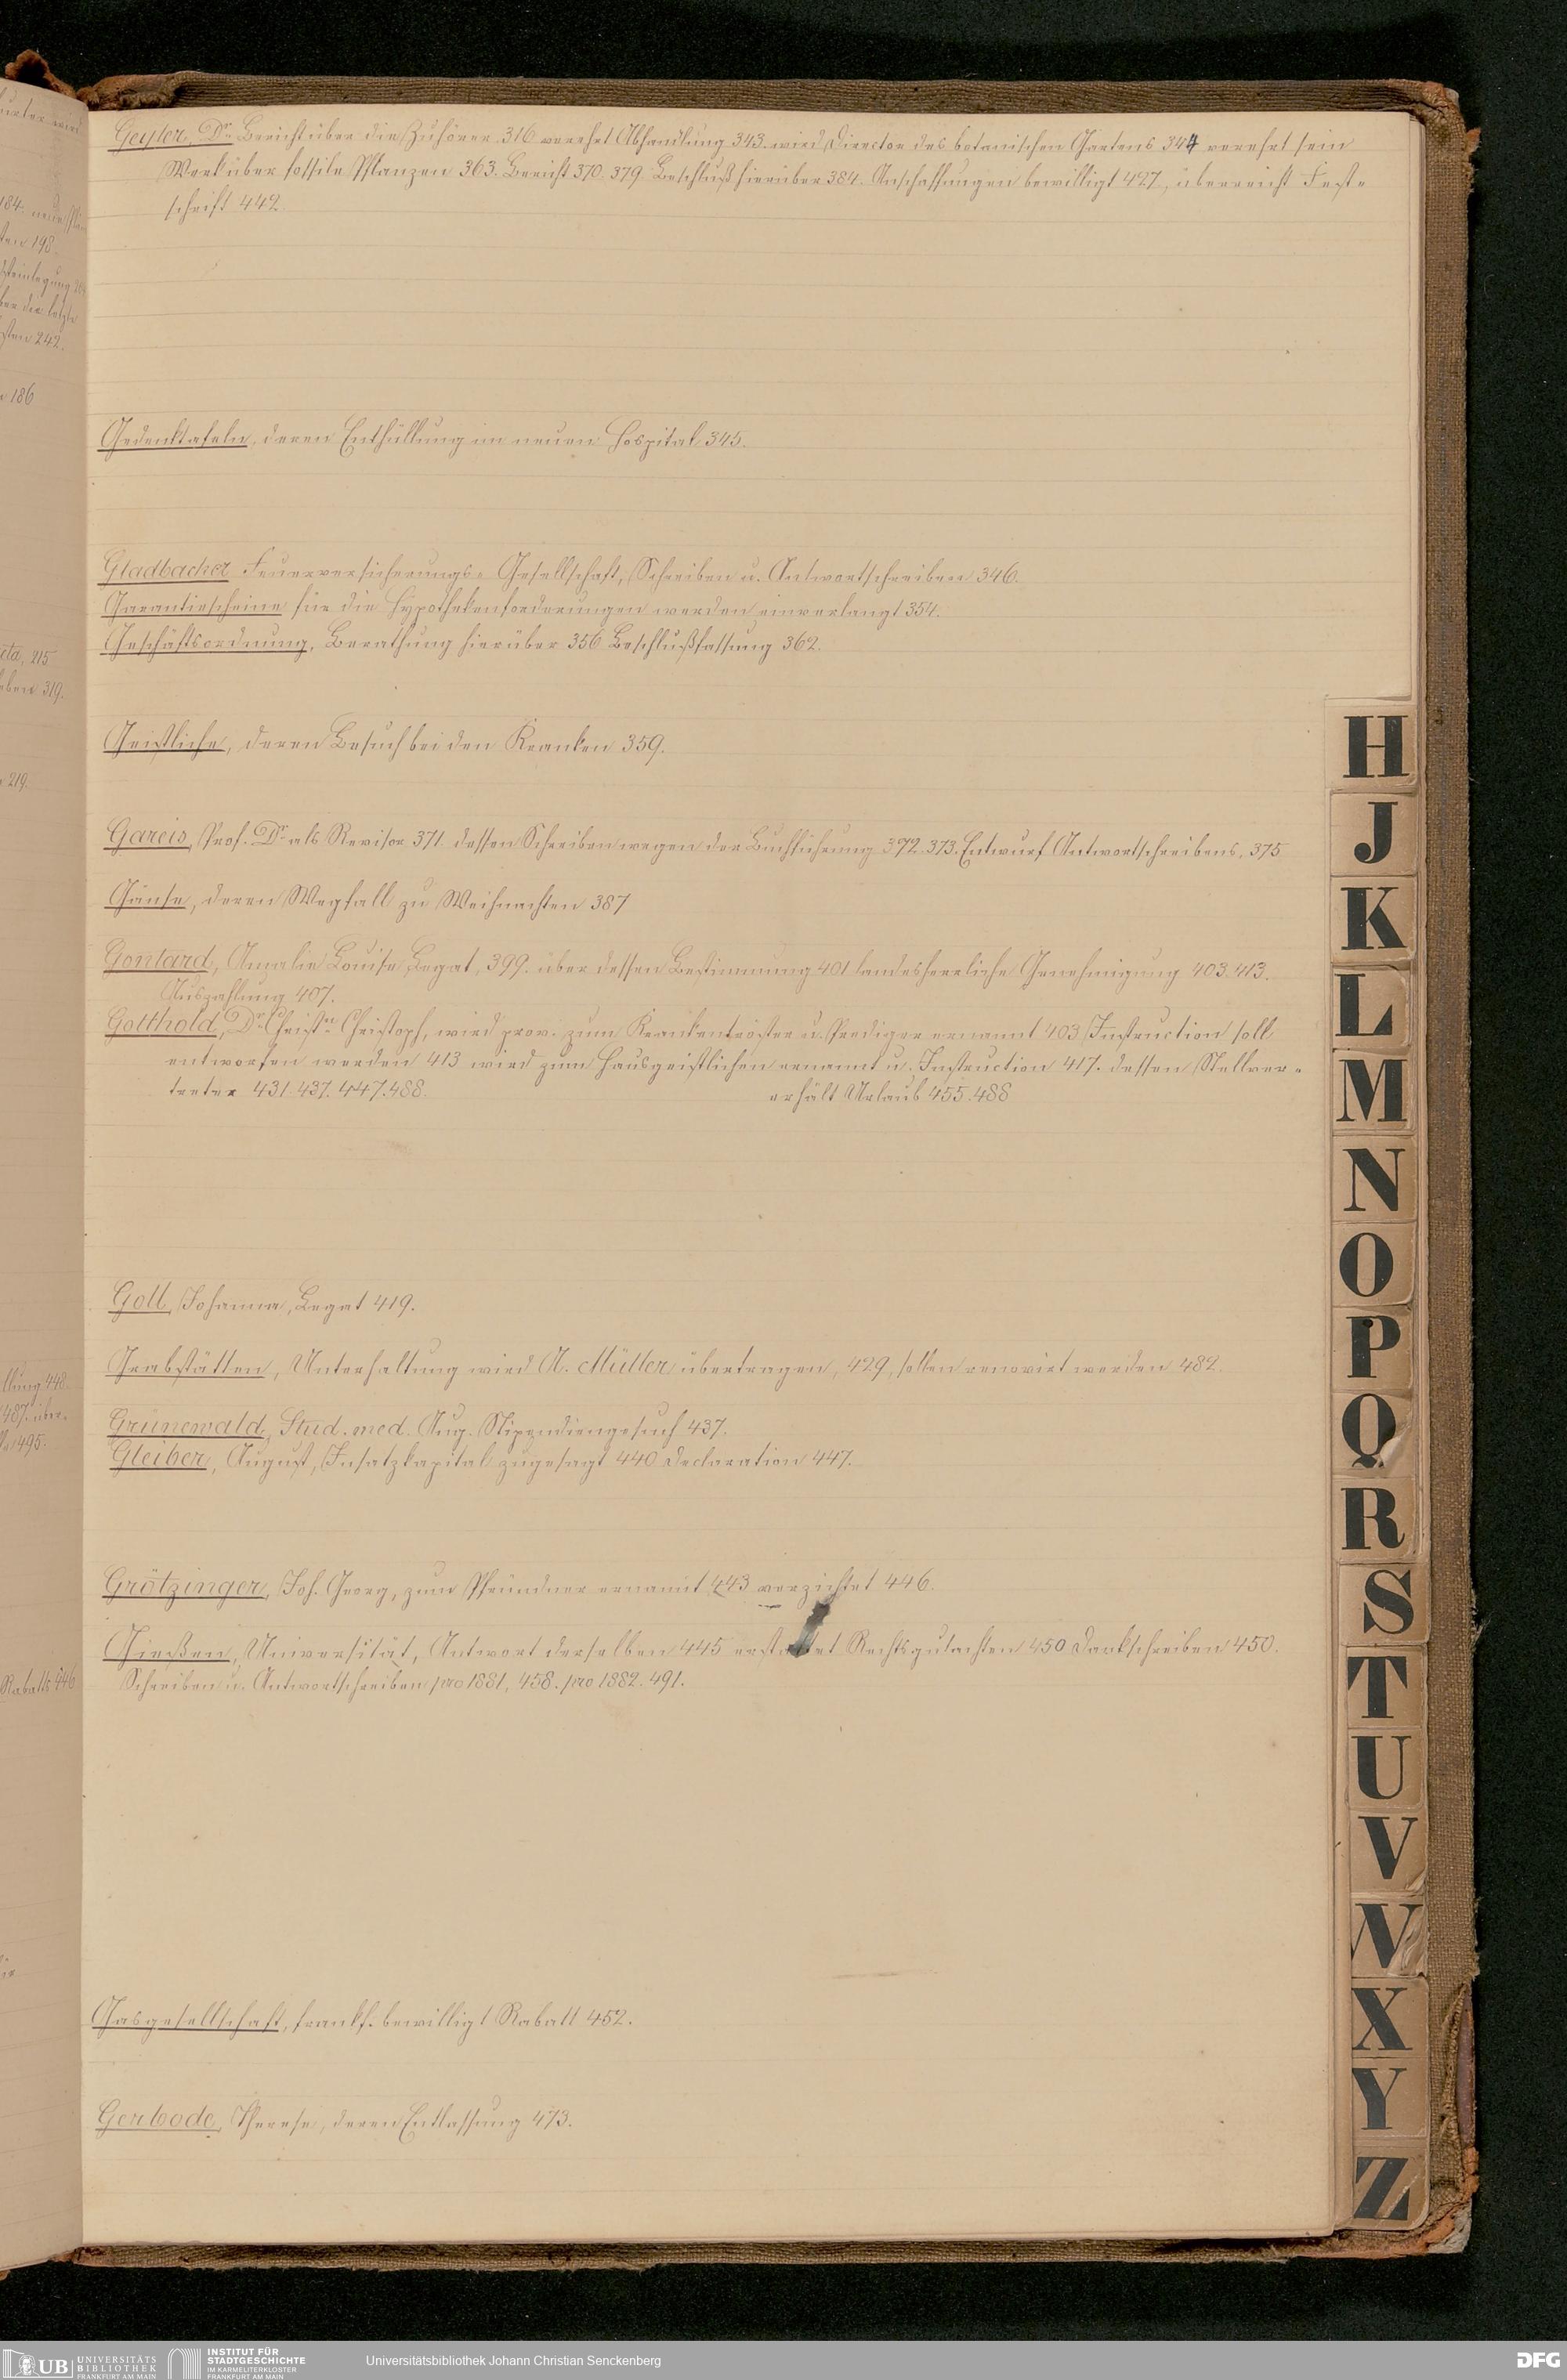 Geyler, Dr. Bericht über die Zuhörer 316 verehrt Abhandlung 343. wird Director des botanischen Gartens 344 verehrt sein
Werk über fossile Pflanzen 363. Bericht 370. 379 Beschluß hierüber 384. Anschaffungen bewilligt 427, überreicht Fest-
schrift 442.
Gedenktafeln, deren Enthüllung im neuen Hospital 345.
Gladbacher Feuerversicherungs-Gesellschaft, Schreiben u. Antwortschreiben 346.
Garantiescheine für die Hypothekenforderungen werden einverlangt 354.
Geschäftsordnung, Berathung hierüber 356 Beschlußfassung 362.
Geistliche, deren Besuch bei den Kranken 359.
Gareis, Prof. Dr. als Revisor 371. dessen Schreiben wegen der Buchführung 372. 373. Entwurf Antwortschreibens, 375
Gänse, deren Wegfall zu Weihnachten 387
Gontard, Amalie Louise Legat, 399. über dessen Bestimmung 401 landesherrliche Genehmigung 403. 413.
Auszahlung 407.
Gotthold, Dr. Christn. Christoph, wird prov. zum Krankentröster u. Prediger ernannt 403 Instruction soll
entworfen werden 413 wird zum Hausgeistlichen ernannt u. Instruction 417. dessen Stellver-
treter 431. 437. 447. 488. erhält Urlaub 455. 488
Goll, Johanna, Legat 419.
Grabstätten, Unterhaltung wird A. Müller übertragen, 429, sollen renovirt werden 482.
Grünewald, Stud. med. Aug. Stipendiengesuch 437.
Gleiber, August, Insatzkapital zugesagt 440 Declaration 447.
Grötzinger, Joh. Georg, zum Pfründner ernannt 443 verzichtet 446.
Gießen, Universität, Antwort derselben 445 erstattet Rechtsgutachten 450 Dankschreiben 450.
Schreiben u. Antwortschreiben pro 1881, 458. pro 1882. 491.
Gasgesellschaft, frankf. bewilligt Rabatt 452.
Gerbode, Therese, deren Entlassung 473.
H
J
K
L
M
N
O
P
Q
R
S
T
U
V
W
X
Y
Z
184.
198.
242.
186
215
319.
219.
448.
487. über-
495.
Rabatts 446
UB UNIVERSITÄTS BIBLIOTHEK FRANKFURT AM MAIN
INSTITUT FÜR STADTGESCHICHTE IM KARMELITERKLOSTER FRANKFURT AM MAIN
Universitätsbibliothek Johann Christian Senckenberg
DFG